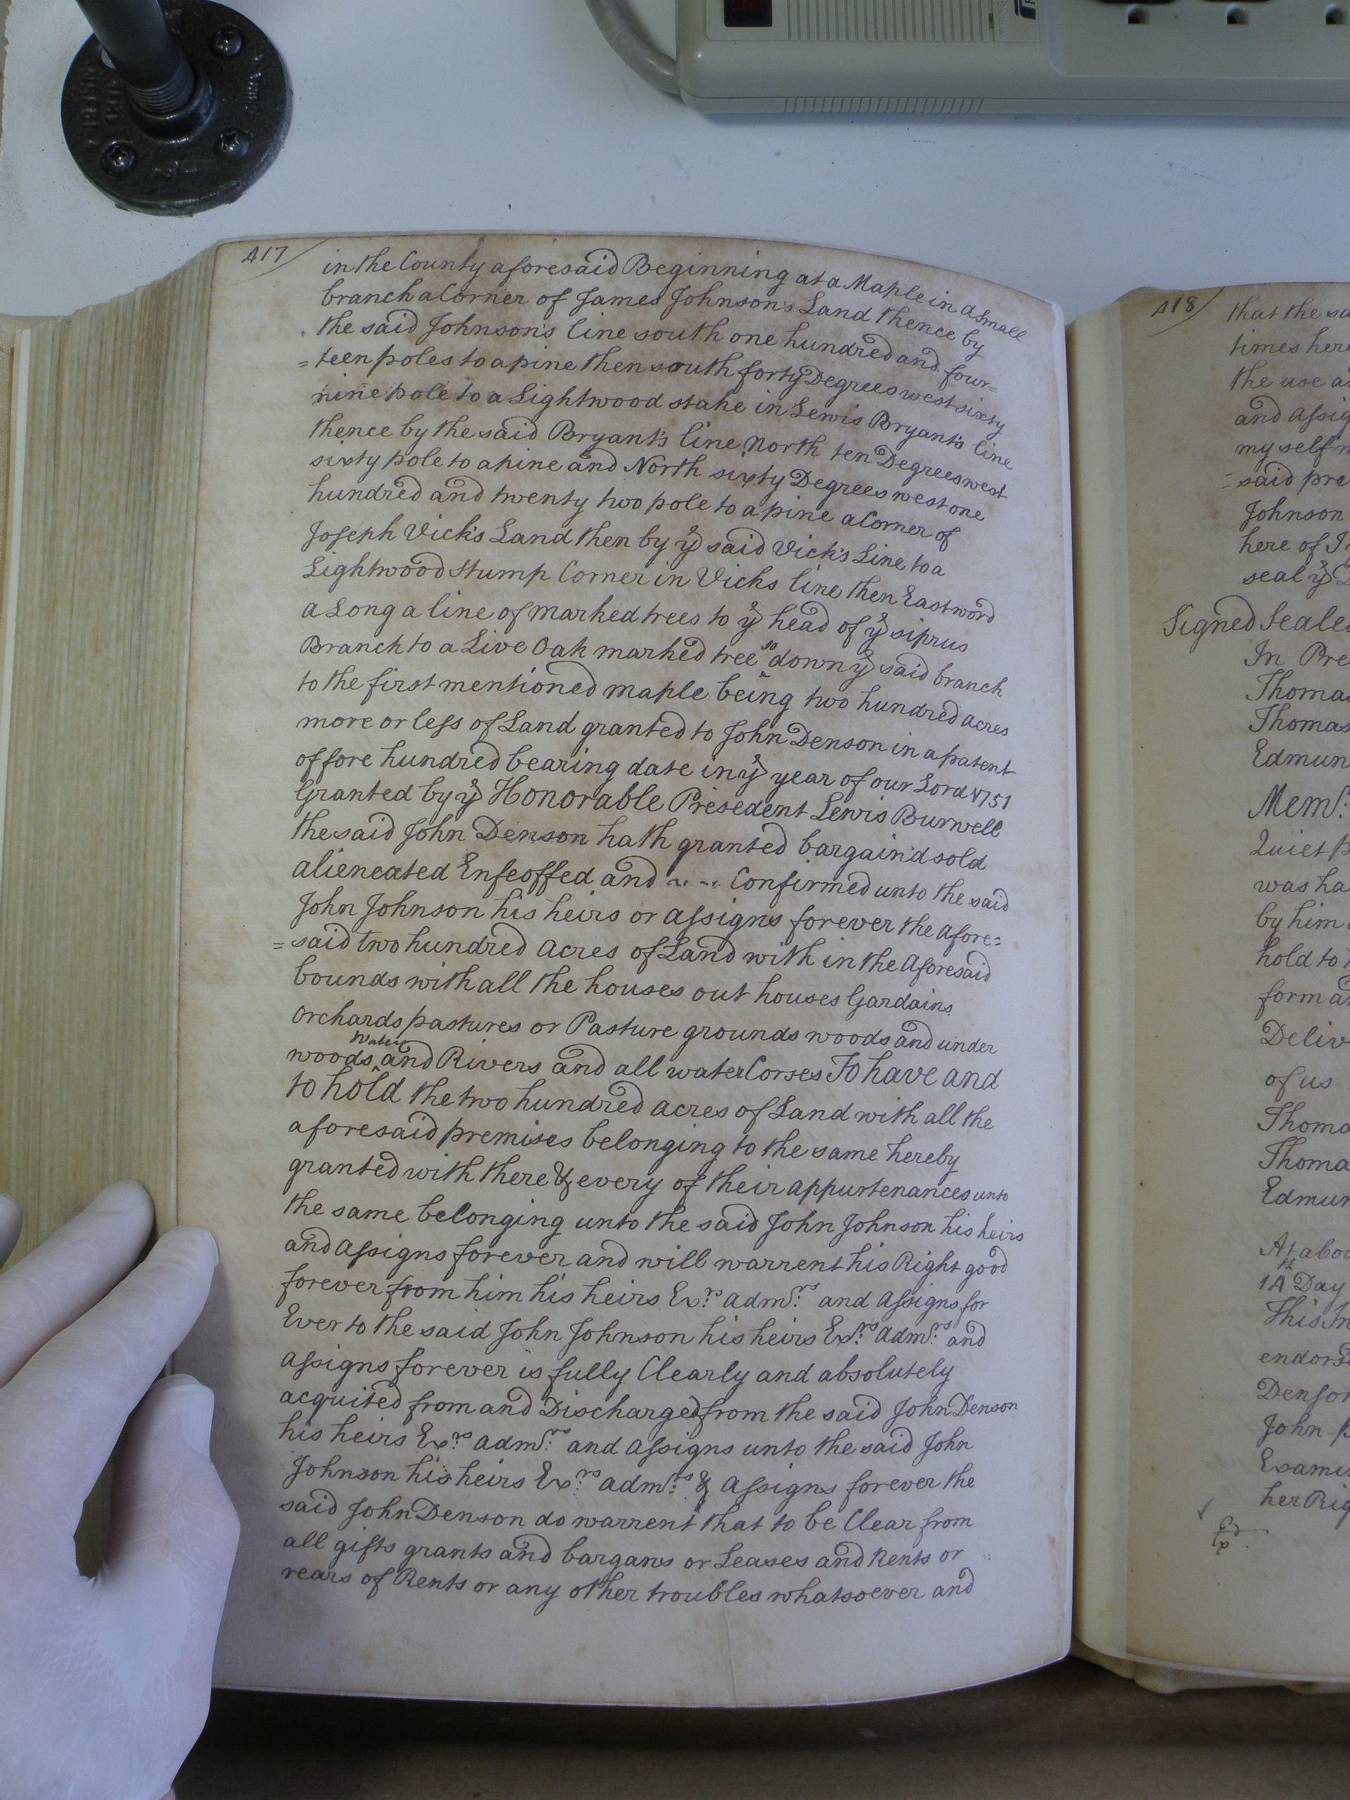 417
in the County aforesaid Beginning at a Maple in a Small
branch a Corner of James Johnson's Land thence by
the said Johnson's line south one hundred and four=
=teen poles to a pine then south forty Degrees west sixty
nine pole to a Lightwood stake in Lewis Bryant's line
thence by the said Bryant's line North ten Degrees west
sixty pole to a pine and North sixty Degrees west one
hundred and twenty two pole to a pine a Corner of
Joseph Vick's Land then by ye said Vick's Line to a
Lightwood Stump Corner in Vicks line then Eastword
a Long a line of marked trees to ye head of ye siprus
Branch to a Live Oak marked tree so down ye said branch
to the first mentioned maple being two hundred acres
more or less of Land granted to John Denson in a patent
of fore hundred bearing date in ye year of our Lord 1751
Granted by ye Honorable Presedent Lewis Burwell
the said John Denson hath granted bargain'd sold
alieneated Enfeoffed and Confirmed unto the said
John Johnson his heirs or assigns forever the afore=
=said two hundred acres of Land with in the aforesaid
bounds with all the houses out houses Gardains
Orchards pastures or Pasture grounds woods and under
woods Water and Rivers and all water Corses To have and
to hold the two hundred acres of Land with all the
aforesaid premises belonging to the same hereby
granted with there & every of their appurtenances unto
the same belonging unto the said John Johnson his heirs
and assigns forever and will warrent his Right good
forever from him his heirs Exrs admrs and assigns for
Ever to the said John Johnson his heirs Exrs admrs and
assigns forever is fully Clearly and absolutely
acquited from and Discharged from the said John Denson
his heirs Exrs admrs and assigns unto the said John
Johnson his heirs Exrs admrs & assigns forever the
said John Denson do warrent that to be Clear from
all gifts grants and bargans or Leases and Rents or
rears of Rents or any other troubles whatsoever and
418
that the sa
times here
the use a
and assig
my self
=said pre
Johnson
here of I
seal ye
Signed Seale
In Pre
Thomas
Thomas
Edmun
Memd:
Quiet p
was ha
by him
hold to
form a
Deliv
of us
Thoma
Thoma
Edmun
At a bou
14 Day
This In
endors
Denson
John
Exami
her Rig
Exd.